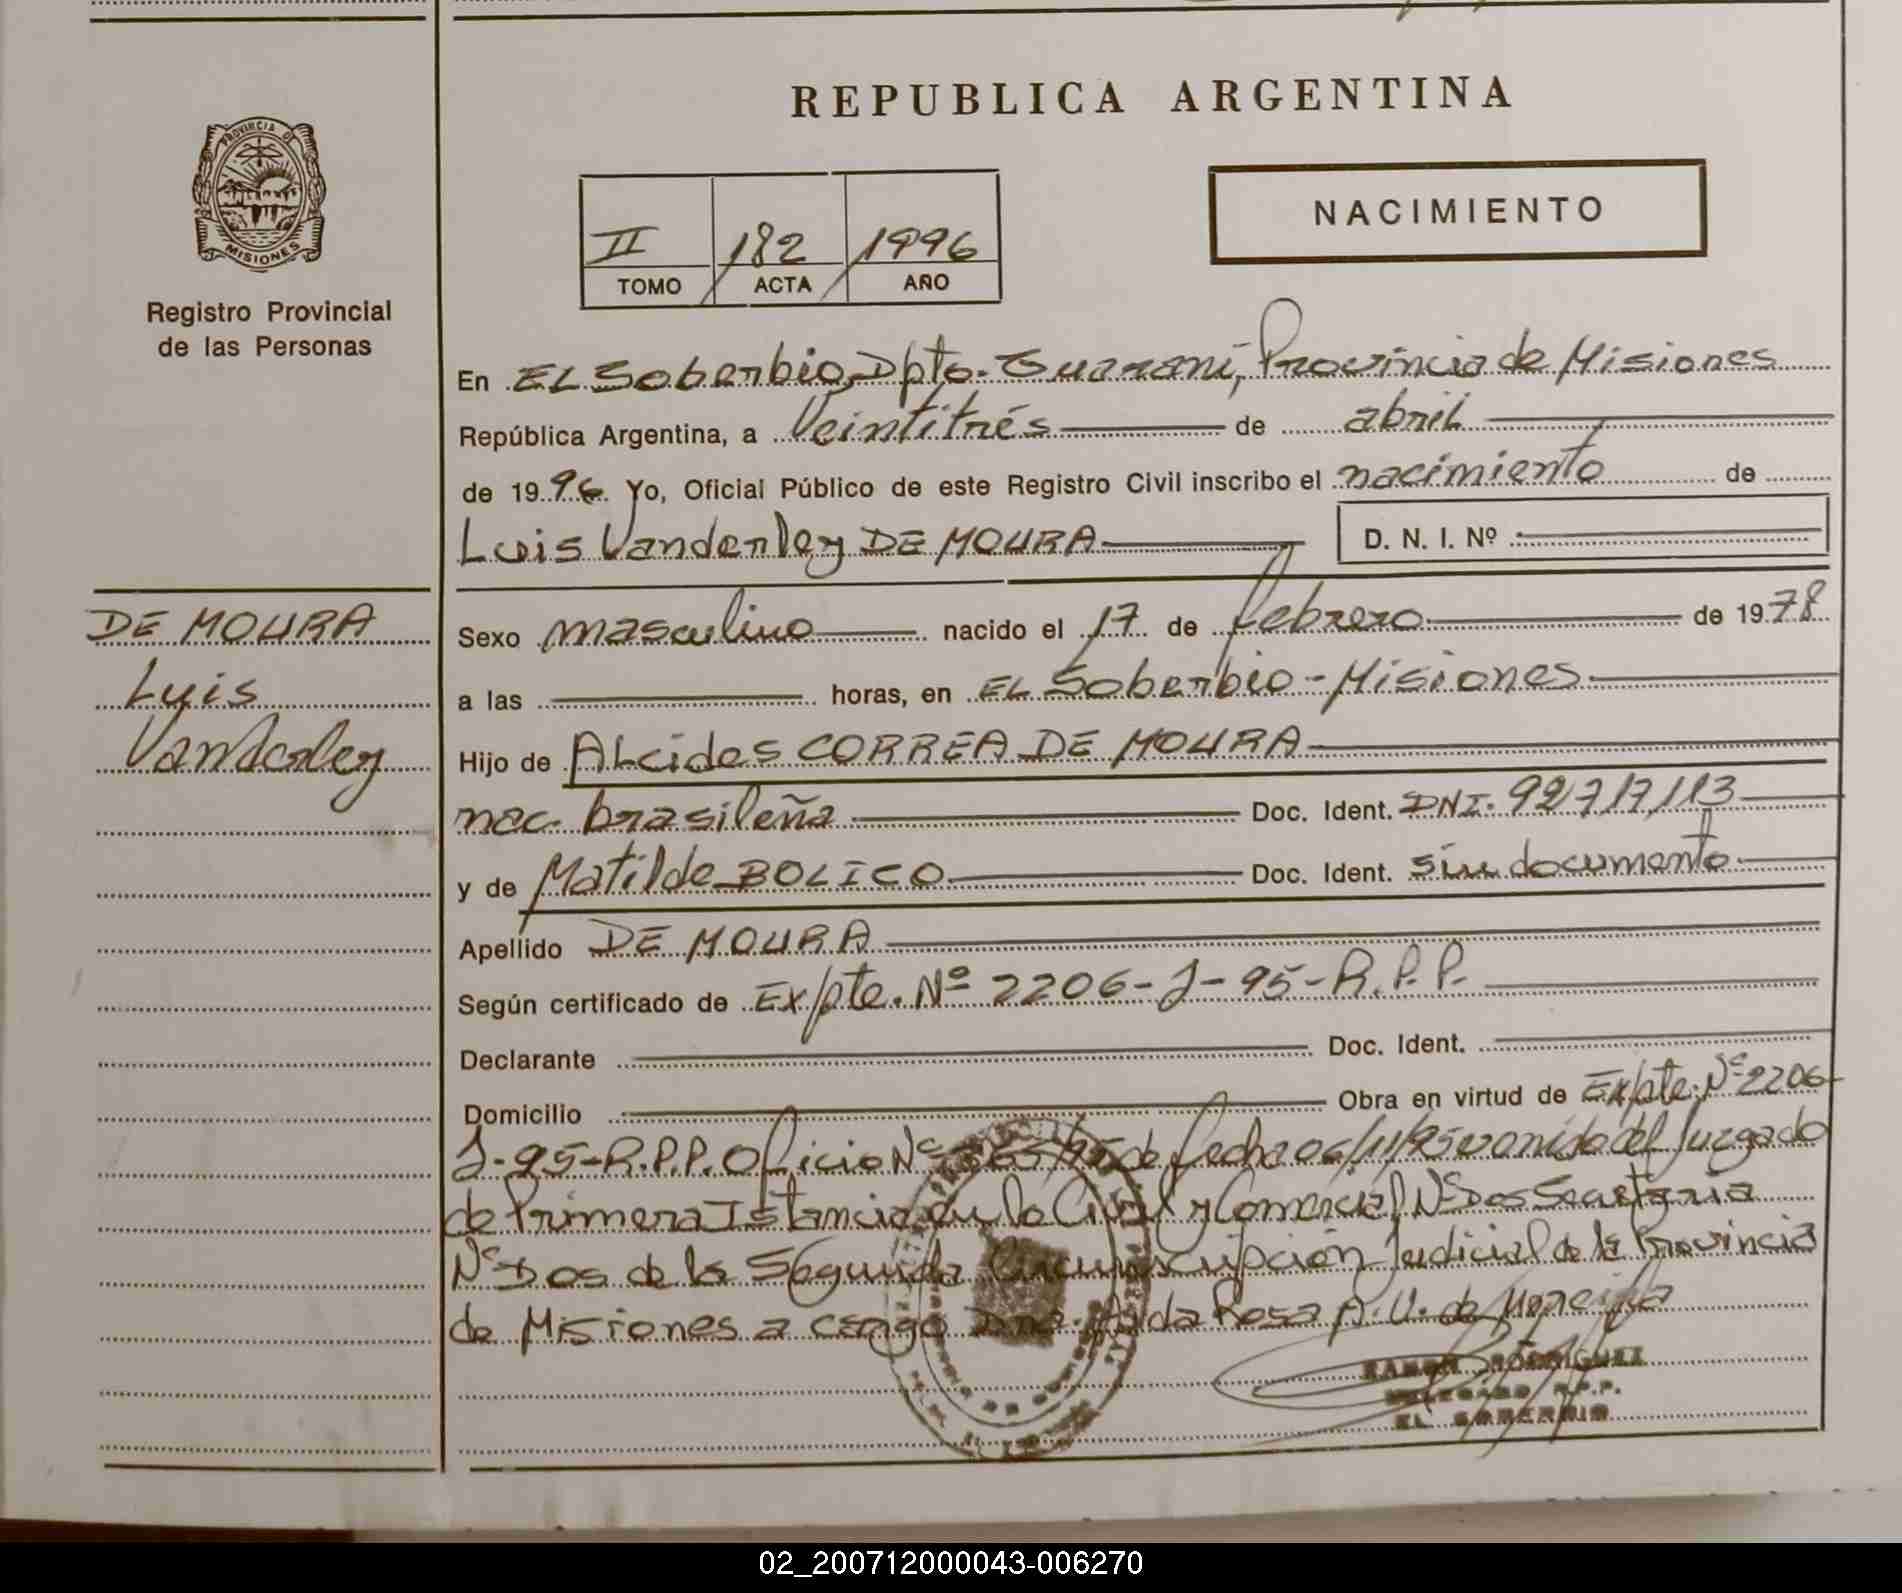 REPUBLICA ARGENTINA
PROVINCIA DE
MISIONES
Registro Provincial
de las Personas
II 182 1996
TOMO ACTA AÑO
NACIMIENTO
En EL Soberbio, Dpto. Guaraní, Provincia de Misiones
República Argentina, a Veintitrés de abril
de 1996 Yo, Oficial Público de este Registro Civil inscribo el nacimiento de
Luis Vanderley DE MOURA D. N. I. Nº
DE MOURA
Luis
Vanderley
Sexo masculino nacido el 17 de febrero de 1978
a las horas, en EL Soberbio - Misiones
Hijo de ALcides CORREA DE MOURA
nac. brasileña Doc. Ident. DNI. 92717113
y de Matilde BOLICO Doc. Ident. sin documento
Apellido DE MOURA
Según certificado de Expte. Nº 2206-J-95-R.P.P.
Declarante Doc. Ident.
Domicilio Obra en virtud de Expte. Nº 2206-
J-95-R.P.P. Oficio Nº de fecha 06/11/95 venido del Juzgado
de Primera Istancia en lo Civil y Comercial Nº Dos Secretaria
Nº Dos de la Segunda Circunscripción Judicial de la Provincia
de Misiones a cargo Dra. Rosa A. U. de
RAMON RODRIGUEZ
DELEGADO R.P.P.
EL SOBERBIO
02_200712000043-006270